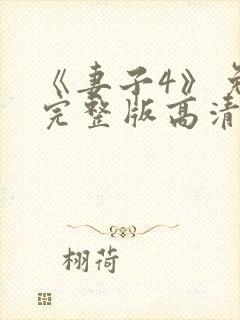 《妻子4》免
完整版高清
栩荷